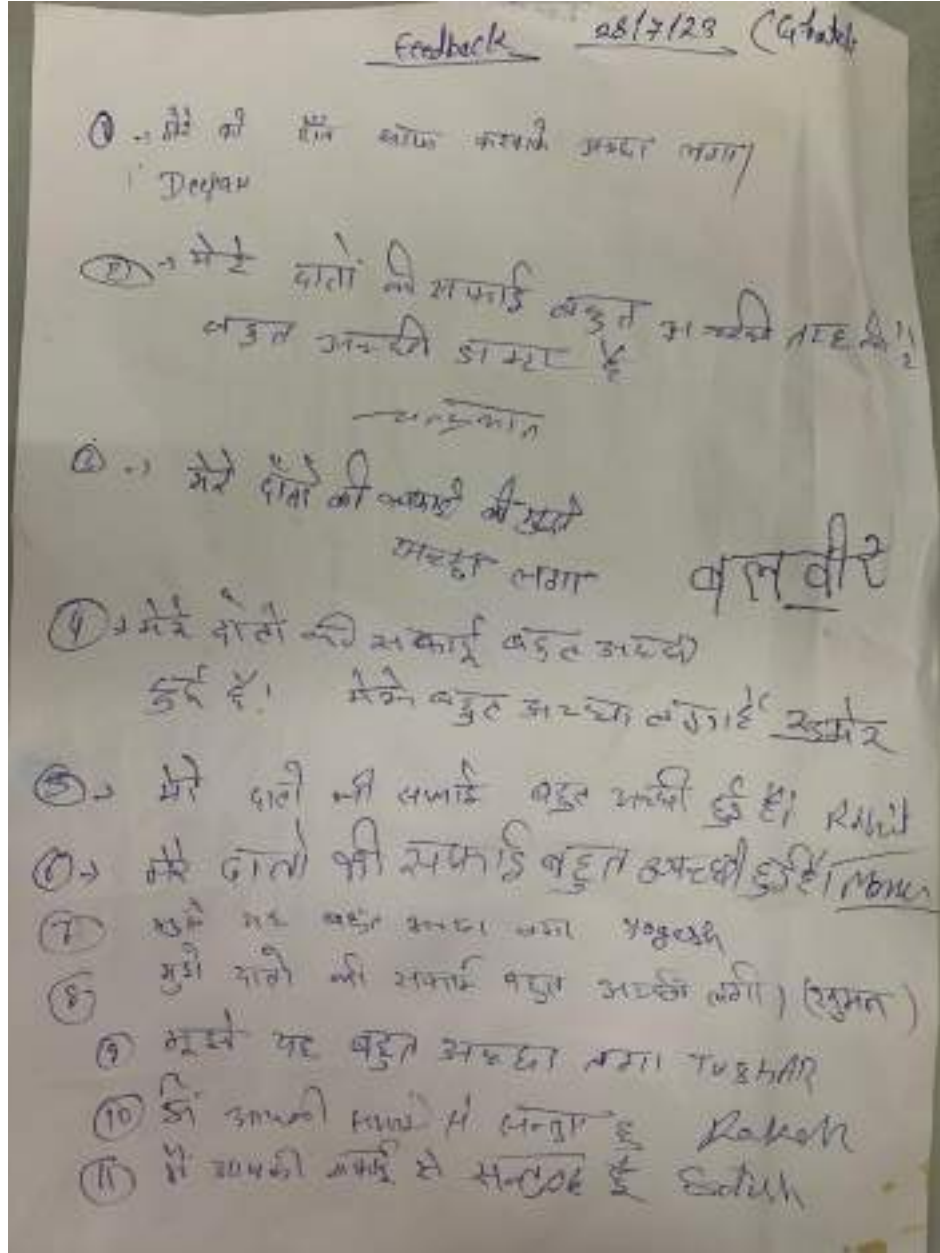 Feedback 28/7/23
① → मेरे को दाँत साफ करवाके अच्छा लगा।
Deepak
② → मेरे दातों की सफाई बहुत अच्छी तरह
बहुत अच्छी है
② → मेरे दाँतों की सफाई की मुझे
अच्छा लगा बलवीर
④ → मेरे दाँतो की सफाई बहुत अच्छी
हुई है। बहुत अच्छा
⑤ → मेरे दातो की सफाई बहुत अच्छी हुई है। Rohit
⑥ → मेरे दातो की सफाई बहुत अच्छी हुई है।
⑦ मुझे यह बहुत अच्छा लगा Yogesh
⑧ मुझे दातो की सफाई बहुत अच्छी लगी।
⑨ मुझे यह बहुत अच्छा लगा TUSHAR
⑩ मैं आपकी से सन्तुष्ट हूँ Rakesh
⑪ मैं आपकी सफाई से हूँ Satish